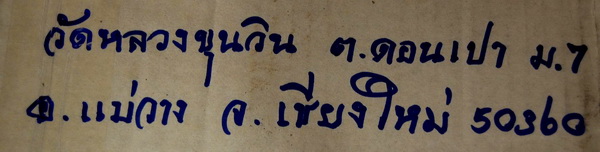 วัดหลวงขุนวิน ต.ดอนเปา ม.7
อ.แม่วาง จ.เชียงใหม่ 50360